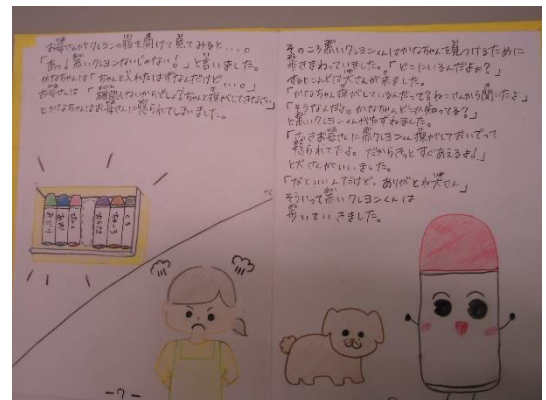 お母さんがクレヨンの箱を開けて見てみると…。
「あっ！赤いクレヨンないじゃない！」と言いました。
かなちゃんは「ちゃんと入れたはずなんだけど…。」
お母さんは「確認しないからでしょ？ちゃんと探がしてきなさい」
とかなちゃんはお母さんに怒られてしまいました。
みどり
あお
むらさき
くろ
-7-
そのころ赤いクレヨンくんはかなちゃんを見つけるために
歩きまわっていました。「どこにいるんだよぉ？」
するとこんどは犬さんが来ました。
「かなちゃん探がしているんだって？ねこさんから聞いたよ」
「そうなんだよ。かなちゃんどこか知ってる？」
と赤いクレヨンくんはたずねました。
「さっきお母さんに赤クレヨンくん探がしておいでって
怒られてたよ。だからきっとすぐあえるよ！」
と犬さんがいいました。
「だといいんだけど。ありがとね犬さん」
そういって赤いクレヨンくんは
歩いていきました。